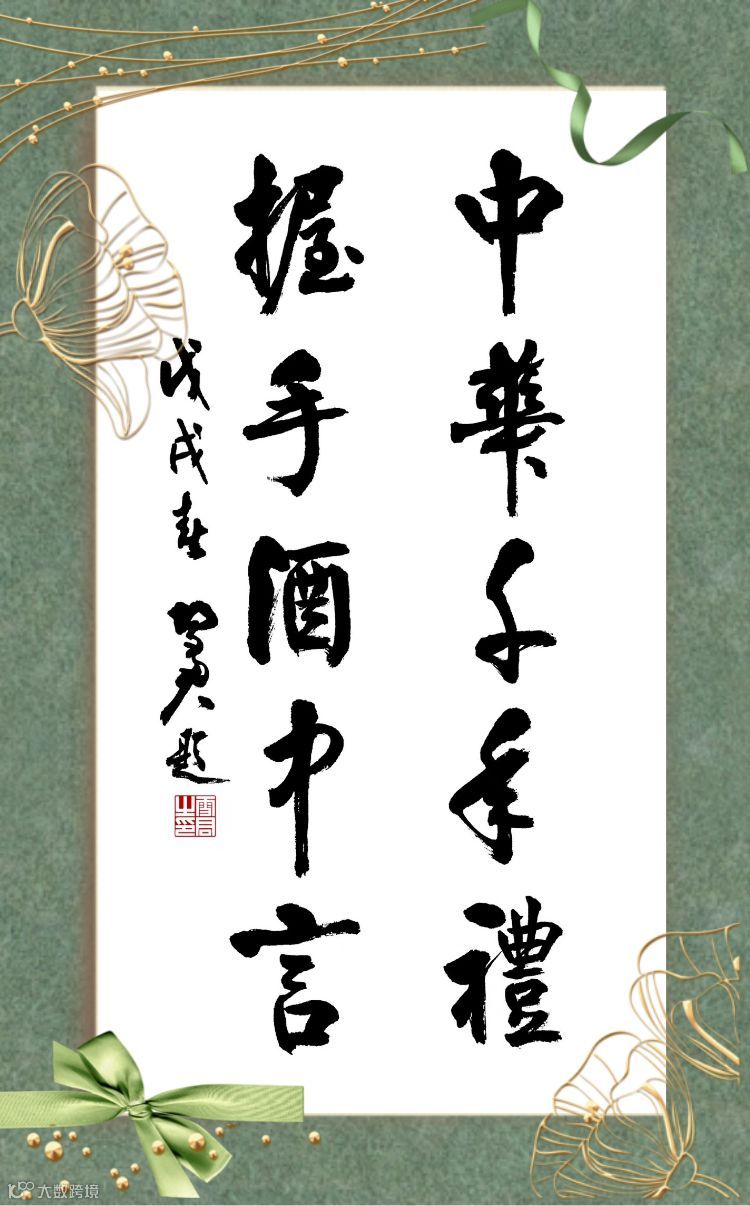 中華千年禮
握手酒中言
戊戌春
題
大数跨境